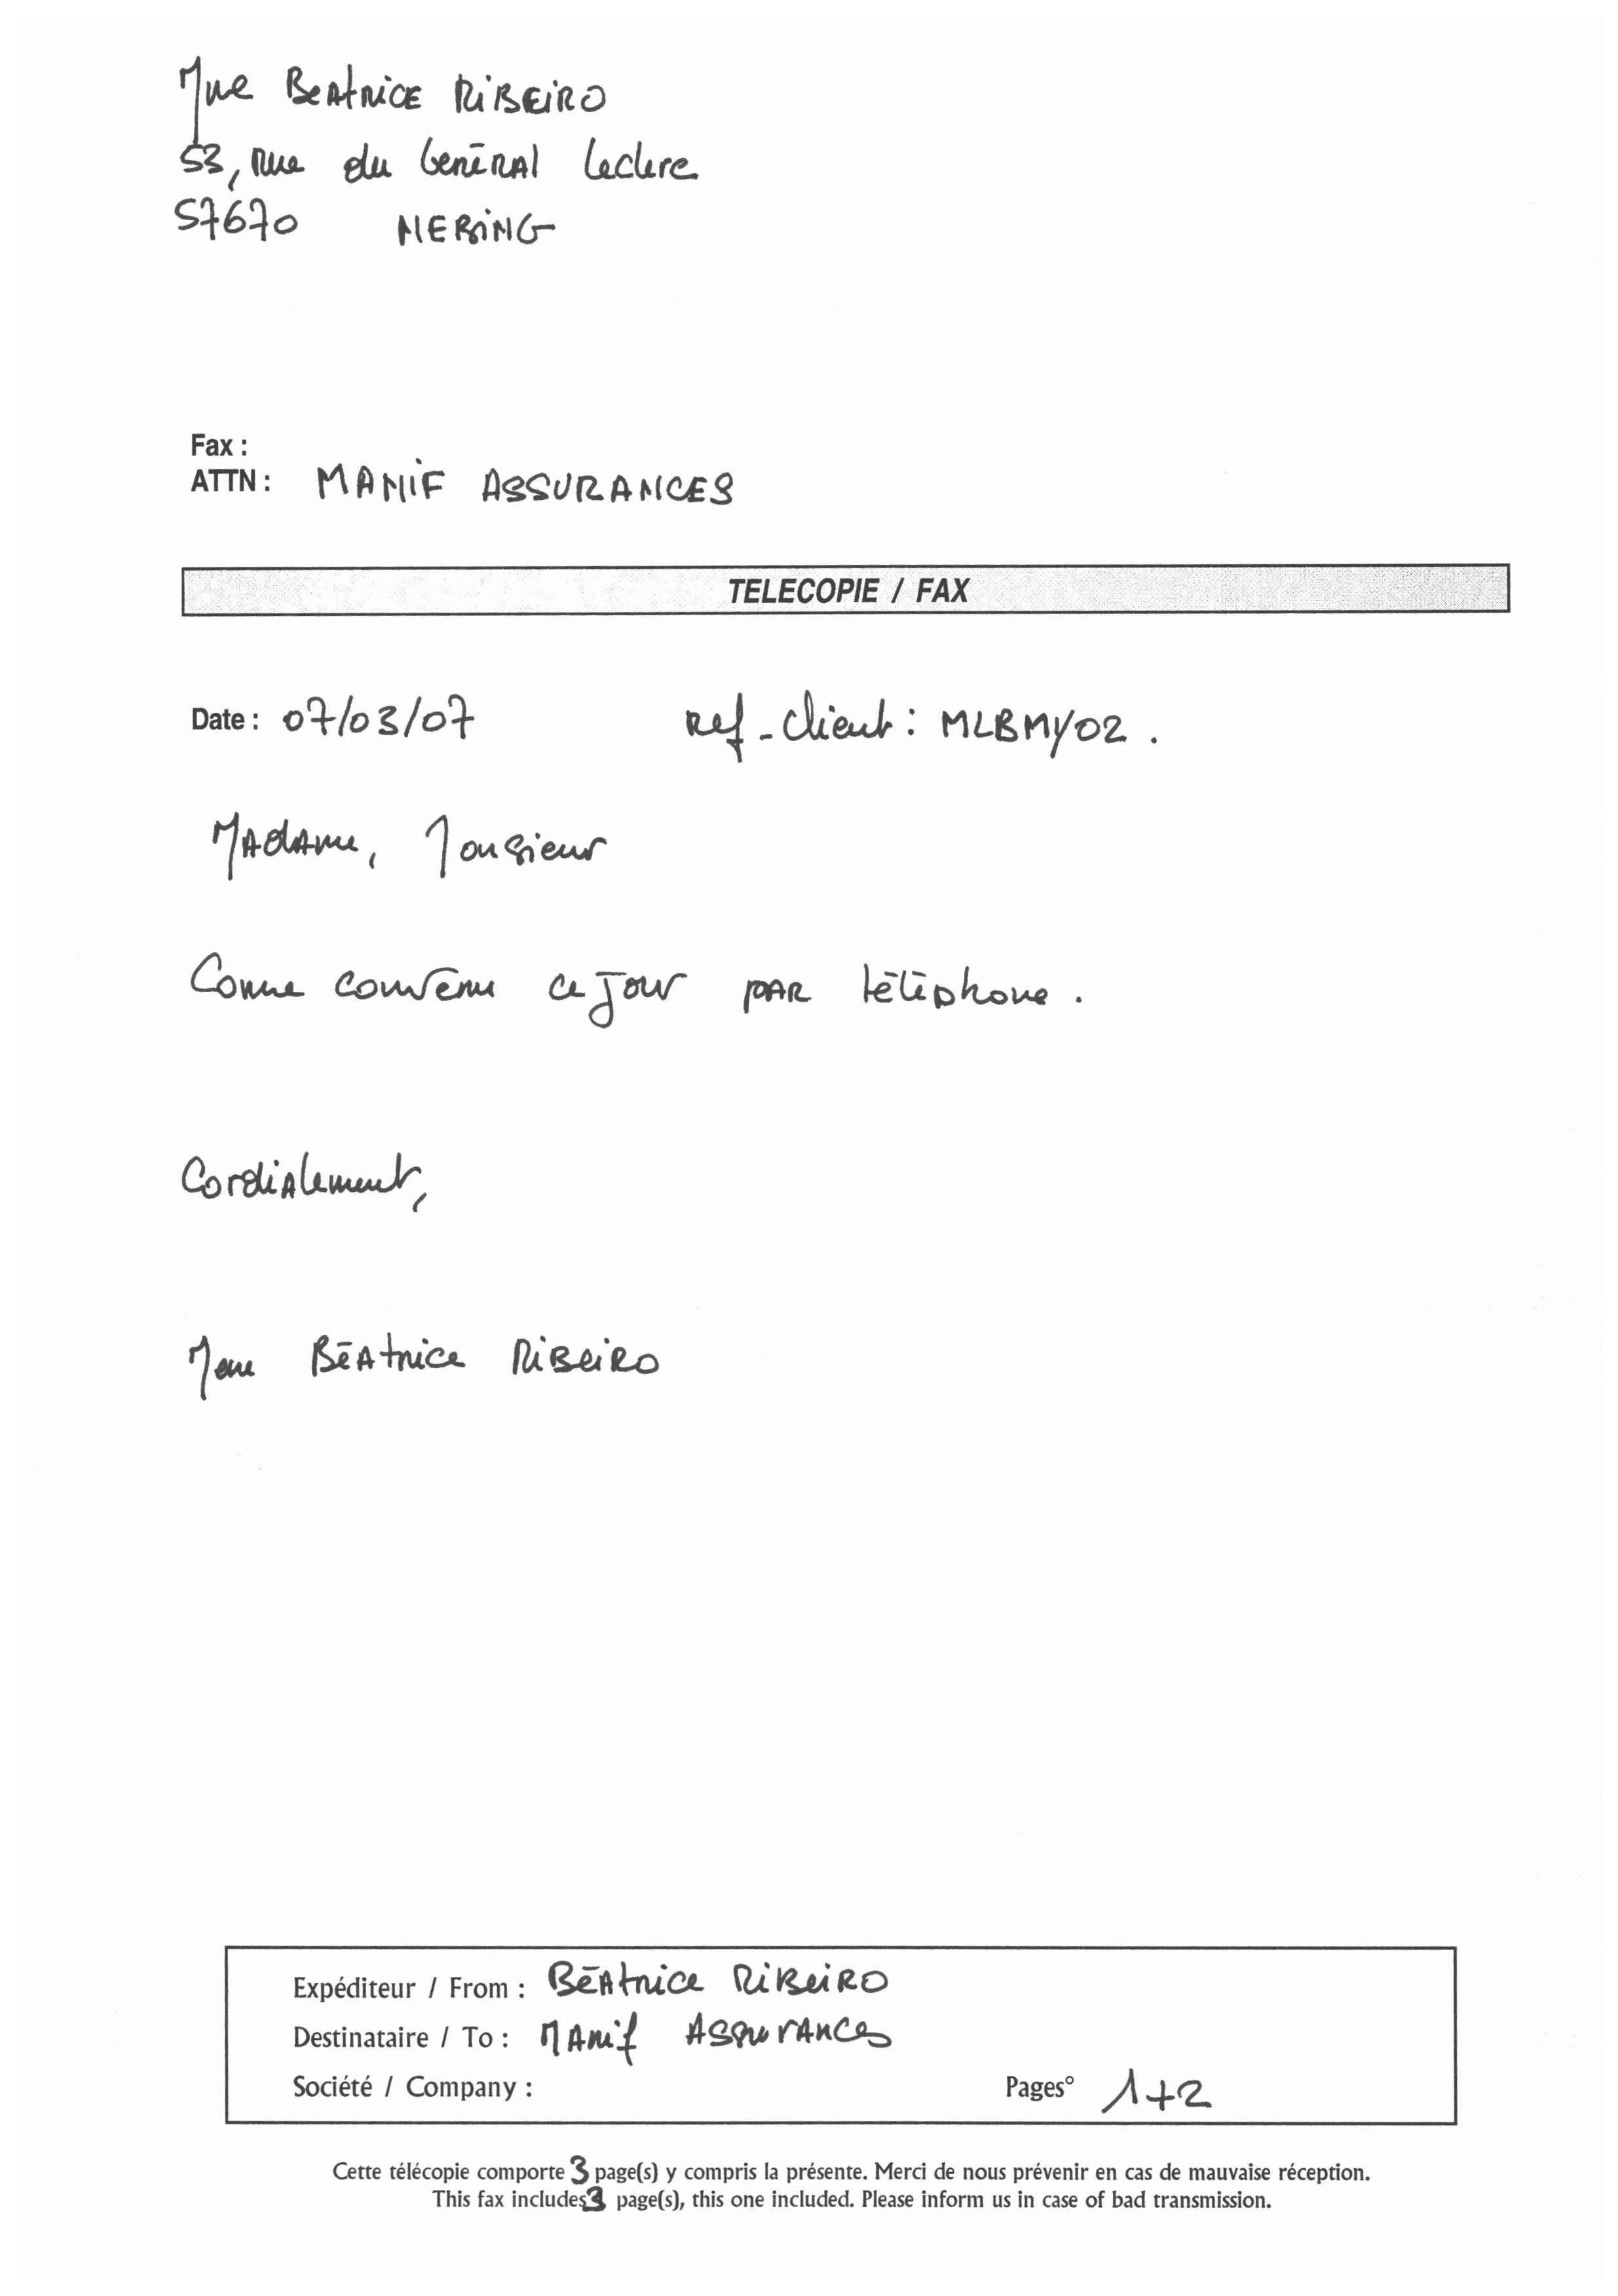 Mme Beatrice RIBEIRO
53, rue du Général Leclerc
57670 NEBING
Fax :
ATTN : MANIF ASSURANCES
TELECOPIE / FAX
Date : 07/03/07 Ref-client : MLBMY02.
Madame, Monsieur
Comme convenu ce jour par téléphone.
Cordialement,
Mme Béatrice Ribeiro
Expéditeur / From : Béatrice RIBEIRO
Destinataire / To : Manif Assurances
Société / Company : Pages° 1+2
Cette télécopie comporte 3 page(s) y compris la présente. Merci de nous prévenir en cas de mauvaise réception.
This fax includes 3 page(s), this one included. Please inform us in case of bad transmission.